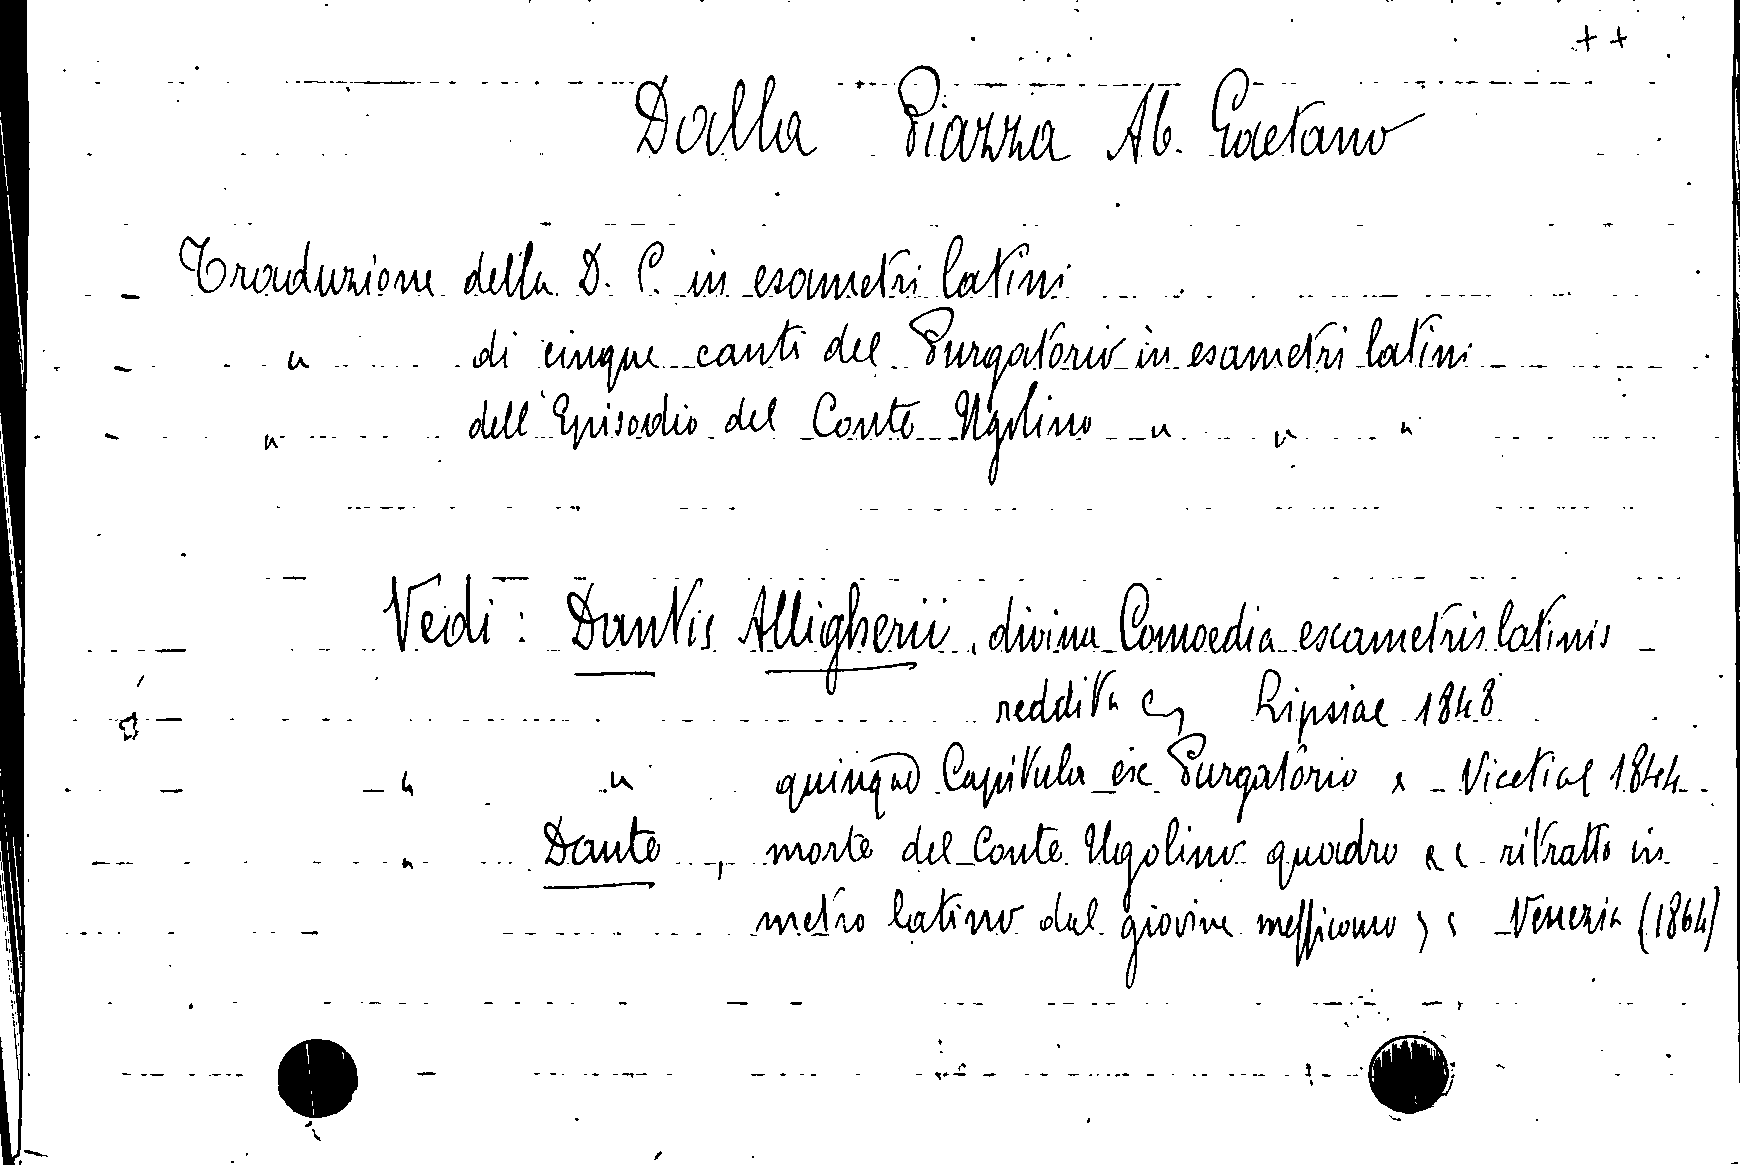 ++
Dalla Piazza Ab. Gaetano
Traduzione della D. C. in esametri latini
" di cinque canti del Purgatorio in esametri latini
" dell'Episodio del Conte Ugolino " " "
Vedi: Dantis Alligherii, divina Comoedia exametris latinis
reddita Lipsiae 1848
" " quinque Capitula ex Purgatorio Vicetiae 1844
" Dante, morte del Conte Ugolino quadro ritratto in
metro latino dal giovine messicano Venezia (1864)